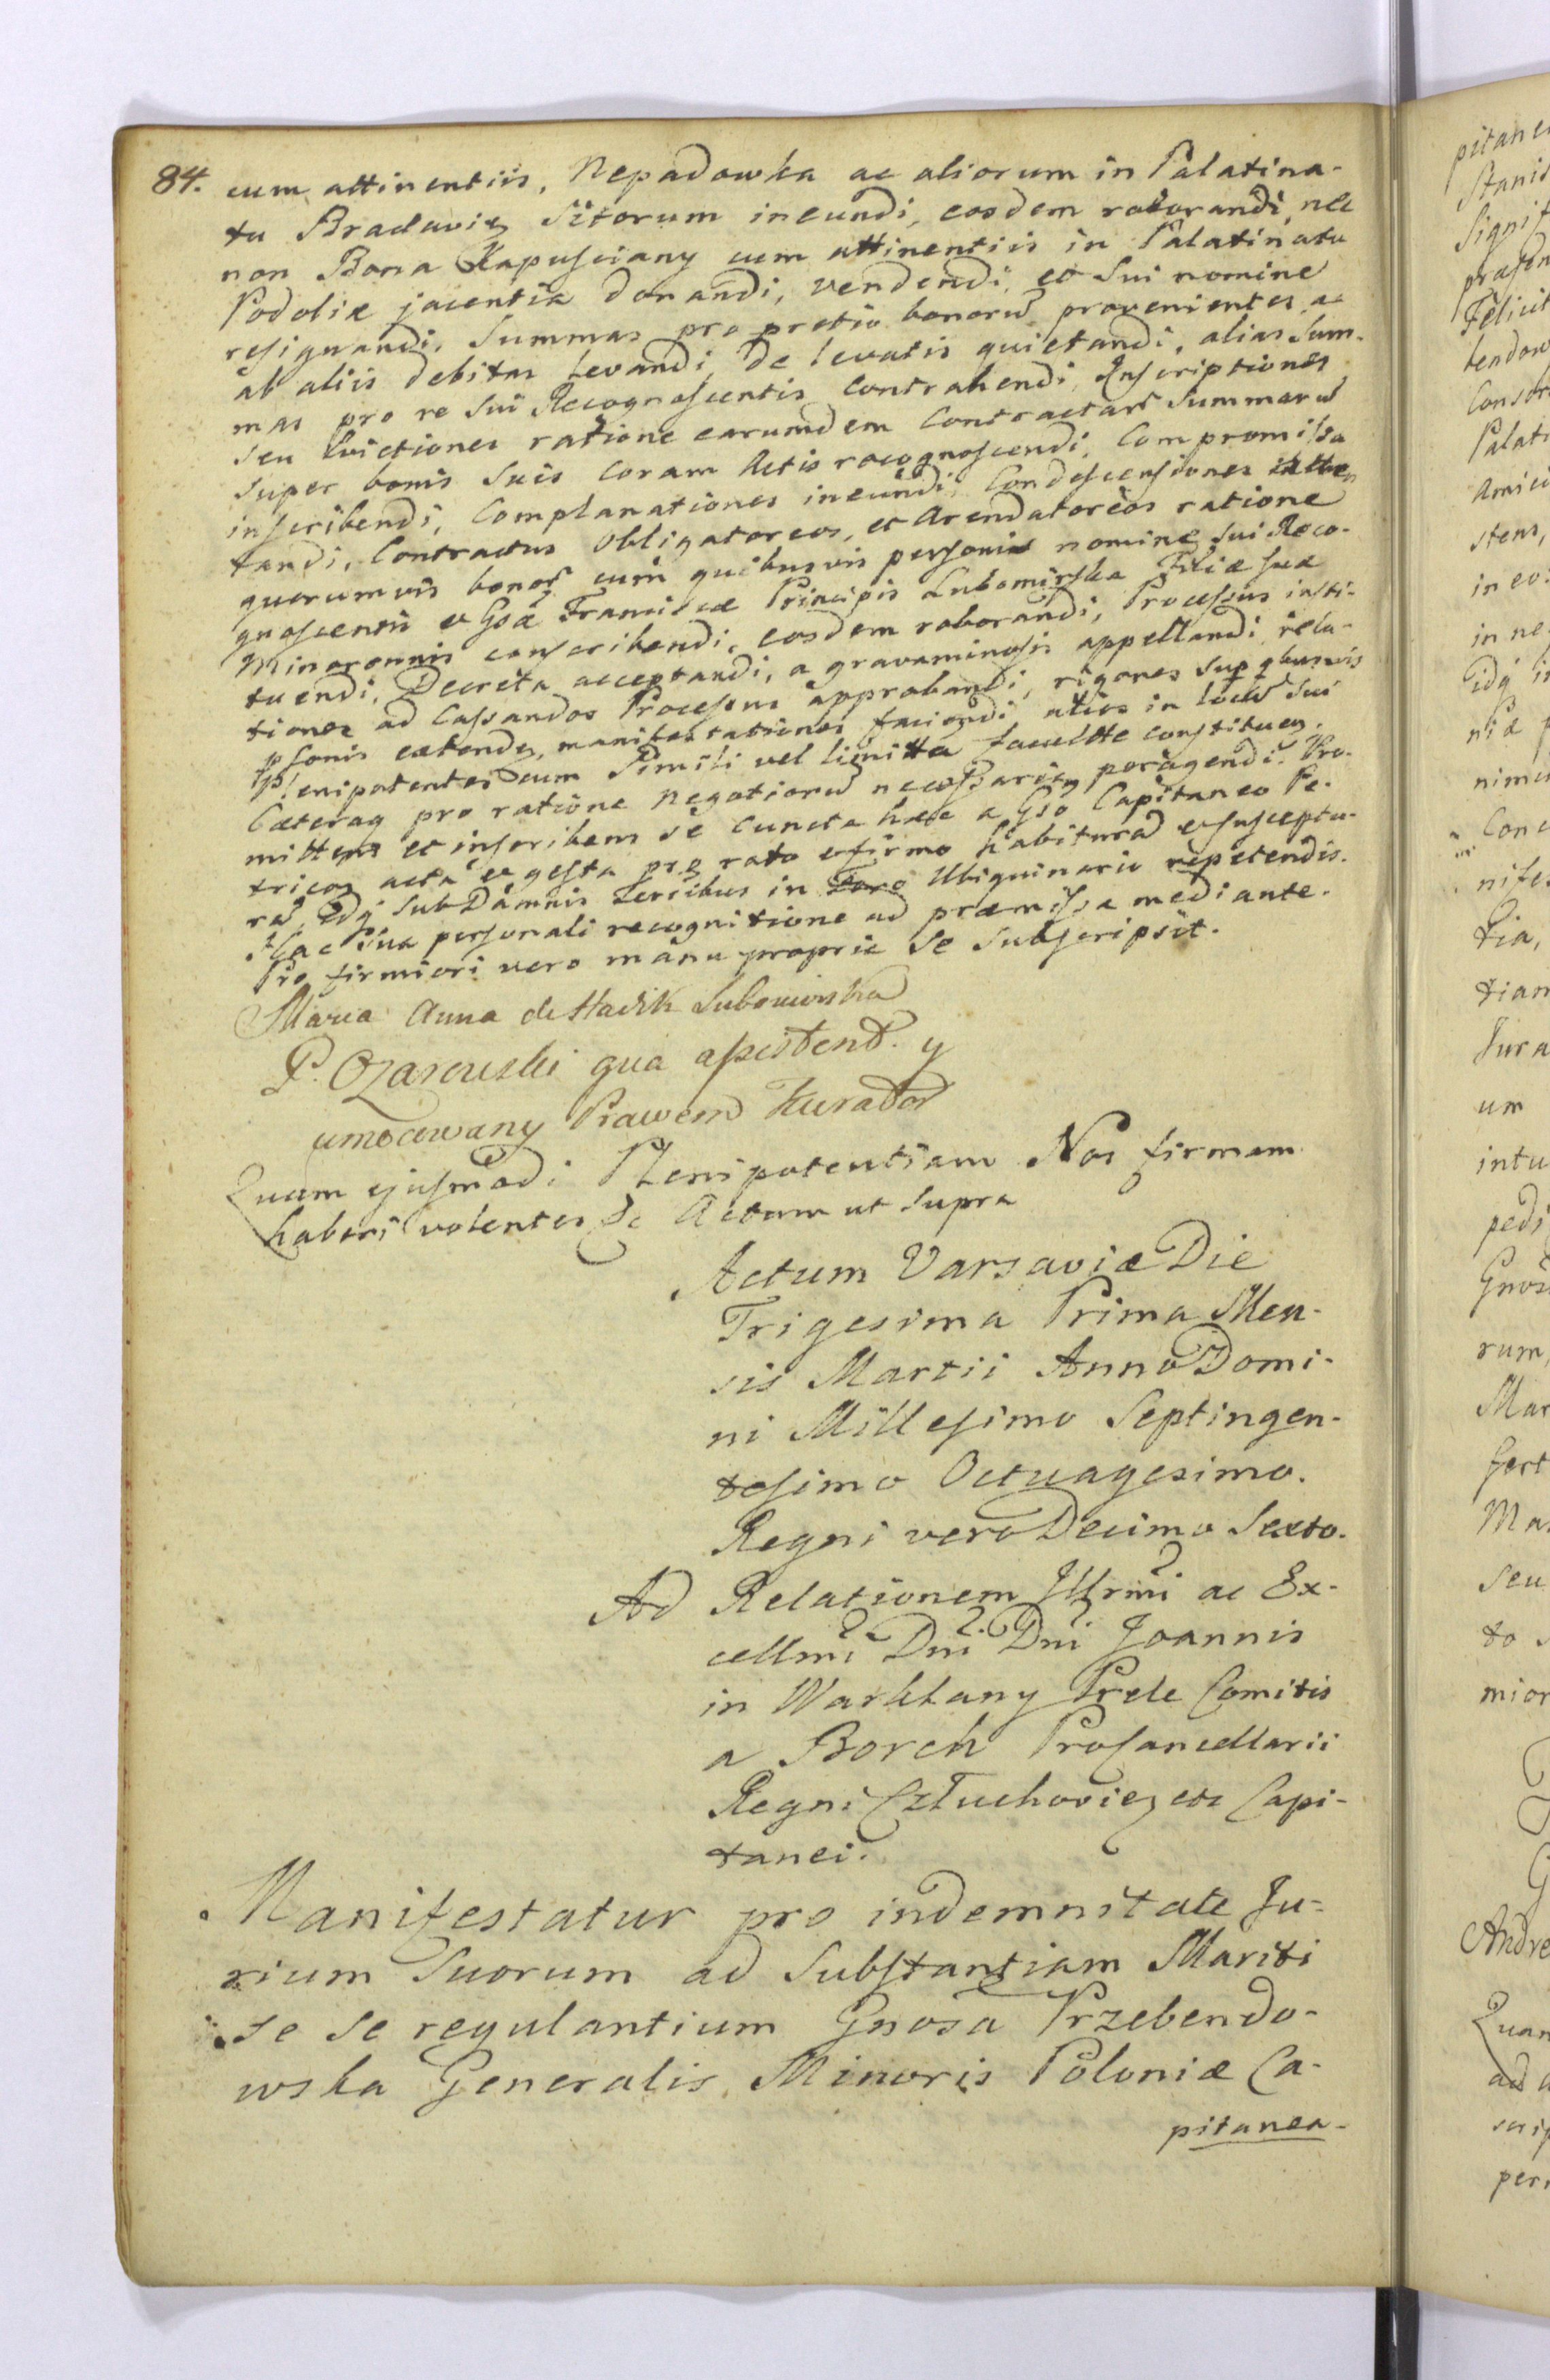 84. cum attinentiis, Nepadowka ac aliorum in Palatina-
tu Braclaviæ Sitorum ineundi, eosdem roborandi, nec
non Bona Kapusciany cum attinentiis in Palatinatu
Podoliæ jacentia donandi, vendendi, et Sui nomine
resignandi, Summas pro pretio bonorū provenientes, ac
ab aliis debitas levandi, De levatis quietandi, alias Sum-
mas pro re Sui Recognoscentis Contrahendi, Inscriptiones
seu Evictiones ratione earumdem Contractarū Summarū
super bonis Suis Coram Actis recognoscendi, Compromissa
inscribendi, Complanationes ineundi, Condescensiones
tandi, Contractus Obligatoreos, et Arendatoreos ratione
quorumvis bonorū cum quibusvis personis nomine Sui Reco-
gnoscentis et Gsæ Franciscæ Principis Lubomirska Filiæ suæ
Minorennis conscribendi, eosdem roborandi, Processus insti-
tuendi, Decreta acceptandi, a gravaminosis appellandi, rela-
tiones ad Cassandos Processus approbandi, rigores sup qbusvis
psonis extendendi, manifestationes faciendi, alios in locū Sui
Plenipotentes cum Simili vel limitta facultte constituen.
Cæteraq pro ratione negotiorū necessariæ peragendi. Pro-
mittens et inscribens se cuncta hæc a Gso Capitaneo Pe-
tricon acta et gesta pro rato et firmo habituram et suscepturam
Idq Sub Damnis Terribus in Foro Ubiquinario repetendis.
Hac Sua personali recognitione ad præmissa mediante.
Pro firmiori vero manu propria Se Subscripsit.
Maria Anna de Hadik Lubomirska
P. Ozarowski qua assistend. y
umocowany Prawem Kurator
Quam ejusmodi Plenipotentiam Nos firmam
haberi volentes &c Actum ut Supra
Actum Varsaviæ Die
Trigesima Prima Men-
sis Martii Anno Domi-
ni Millesimo Septingen-
tesimo Octuagesimo.
Regni vero Decimo Sexto.
Ad Relationem Illrmi ac Ex-
cellmi Dni Dni Joannis
in Warklany Prele Comitis
a Borch Procancellarii
Regni Człuchovien etc Capi-
tanei.
Manifestatur pro indemnitate Ju-
rium Suorum ad Substantiam Mariti
se se regulantium Gnosa Przebendo-
wska Generalis Minoris Poloniæ Ca-
pitanea-